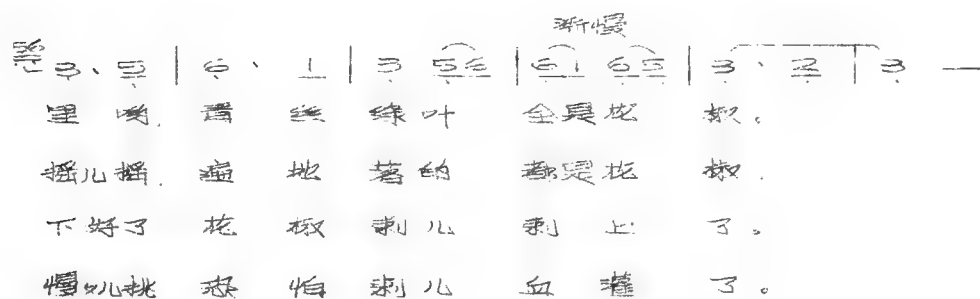 渐慢
3. 5 | 6. 1 | 3 56 | 61 65 | 3. 2 | 3 —
里哟, 青丝绿叶全是花椒。
摇儿摇, 遍地落的都是花椒.
下好了花椒刺儿刺上了。
慢叽挑恐怕刺儿血灌了。